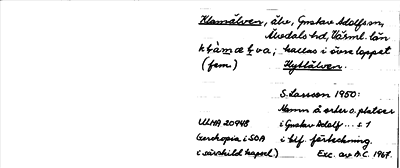 Klarälven, älv, Gustav Adolfs sn,
Älvdals hd, Värml. län
kallas i övre loppet
(fem.) Hyttälven.
S. Larsson 1950:
Namn å orter o. platser
ULMA 20948 i Gustav Adolf ... s. 1
(xerokopia i SOA i blf. förteckning.
i särskild kapsel) Exc. av A.C. 1967.